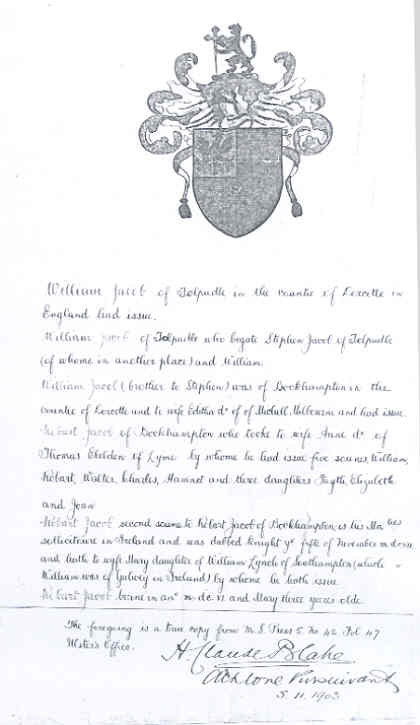 William Jacob of Tolpudle in the countie of Dorcette in
England had issue.
William Jacob of Tolpudle who begate Stephen Jacob of Tolpudle
(of whome in another place) and William.
William Jacob (brother to Stephen) was of Bockhampton in the
countie of Dorcette and to wife Editha dr of of Melbourne and had issue
Robart Jacob of Bockhampton who tooke to wife Anne dr of
Thomas of Lyme by whome he had issue five sonnes, William,
Robart, Walter, Charles, Hamnet and three daughters Fayth, Elizabeth
and Joan
Robart Jacob second sonne to Robart Jacob of Bockhampton is his Maties
solliciteure in Ireland and was dubbed knight ye fifte of November
and hath to wife Mary daughter of William Lynch of Southampton (whole
William was of in Ireland) by whome he hath issue
Robart Jacob borne in ano and Mary three yeares olde.
The foregoing is a true copy from M.S. Press 5. No 42. Fol 47
Ulster's Office.
H. Claude Blake
Athlone Pursuivant
5. 11. 1903